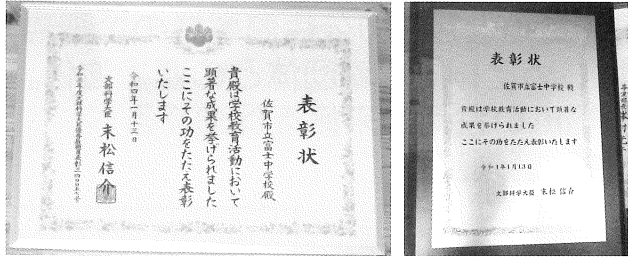 表彰状
佐賀市立富士中学校殿
貴殿は学校教育活動において
顕著な成果を挙げられました
ここにその功をたたえ表彰
いたします
令和四年一月十三日
文部科学大臣 末松信介
表彰状
佐賀市立富士中学校 殿
貴殿は学校教育活動において顕著な
成果を挙げられました
ここにその功をたたえ表彰いたします
令和4年1月13日
文部科学大臣 末松 信介